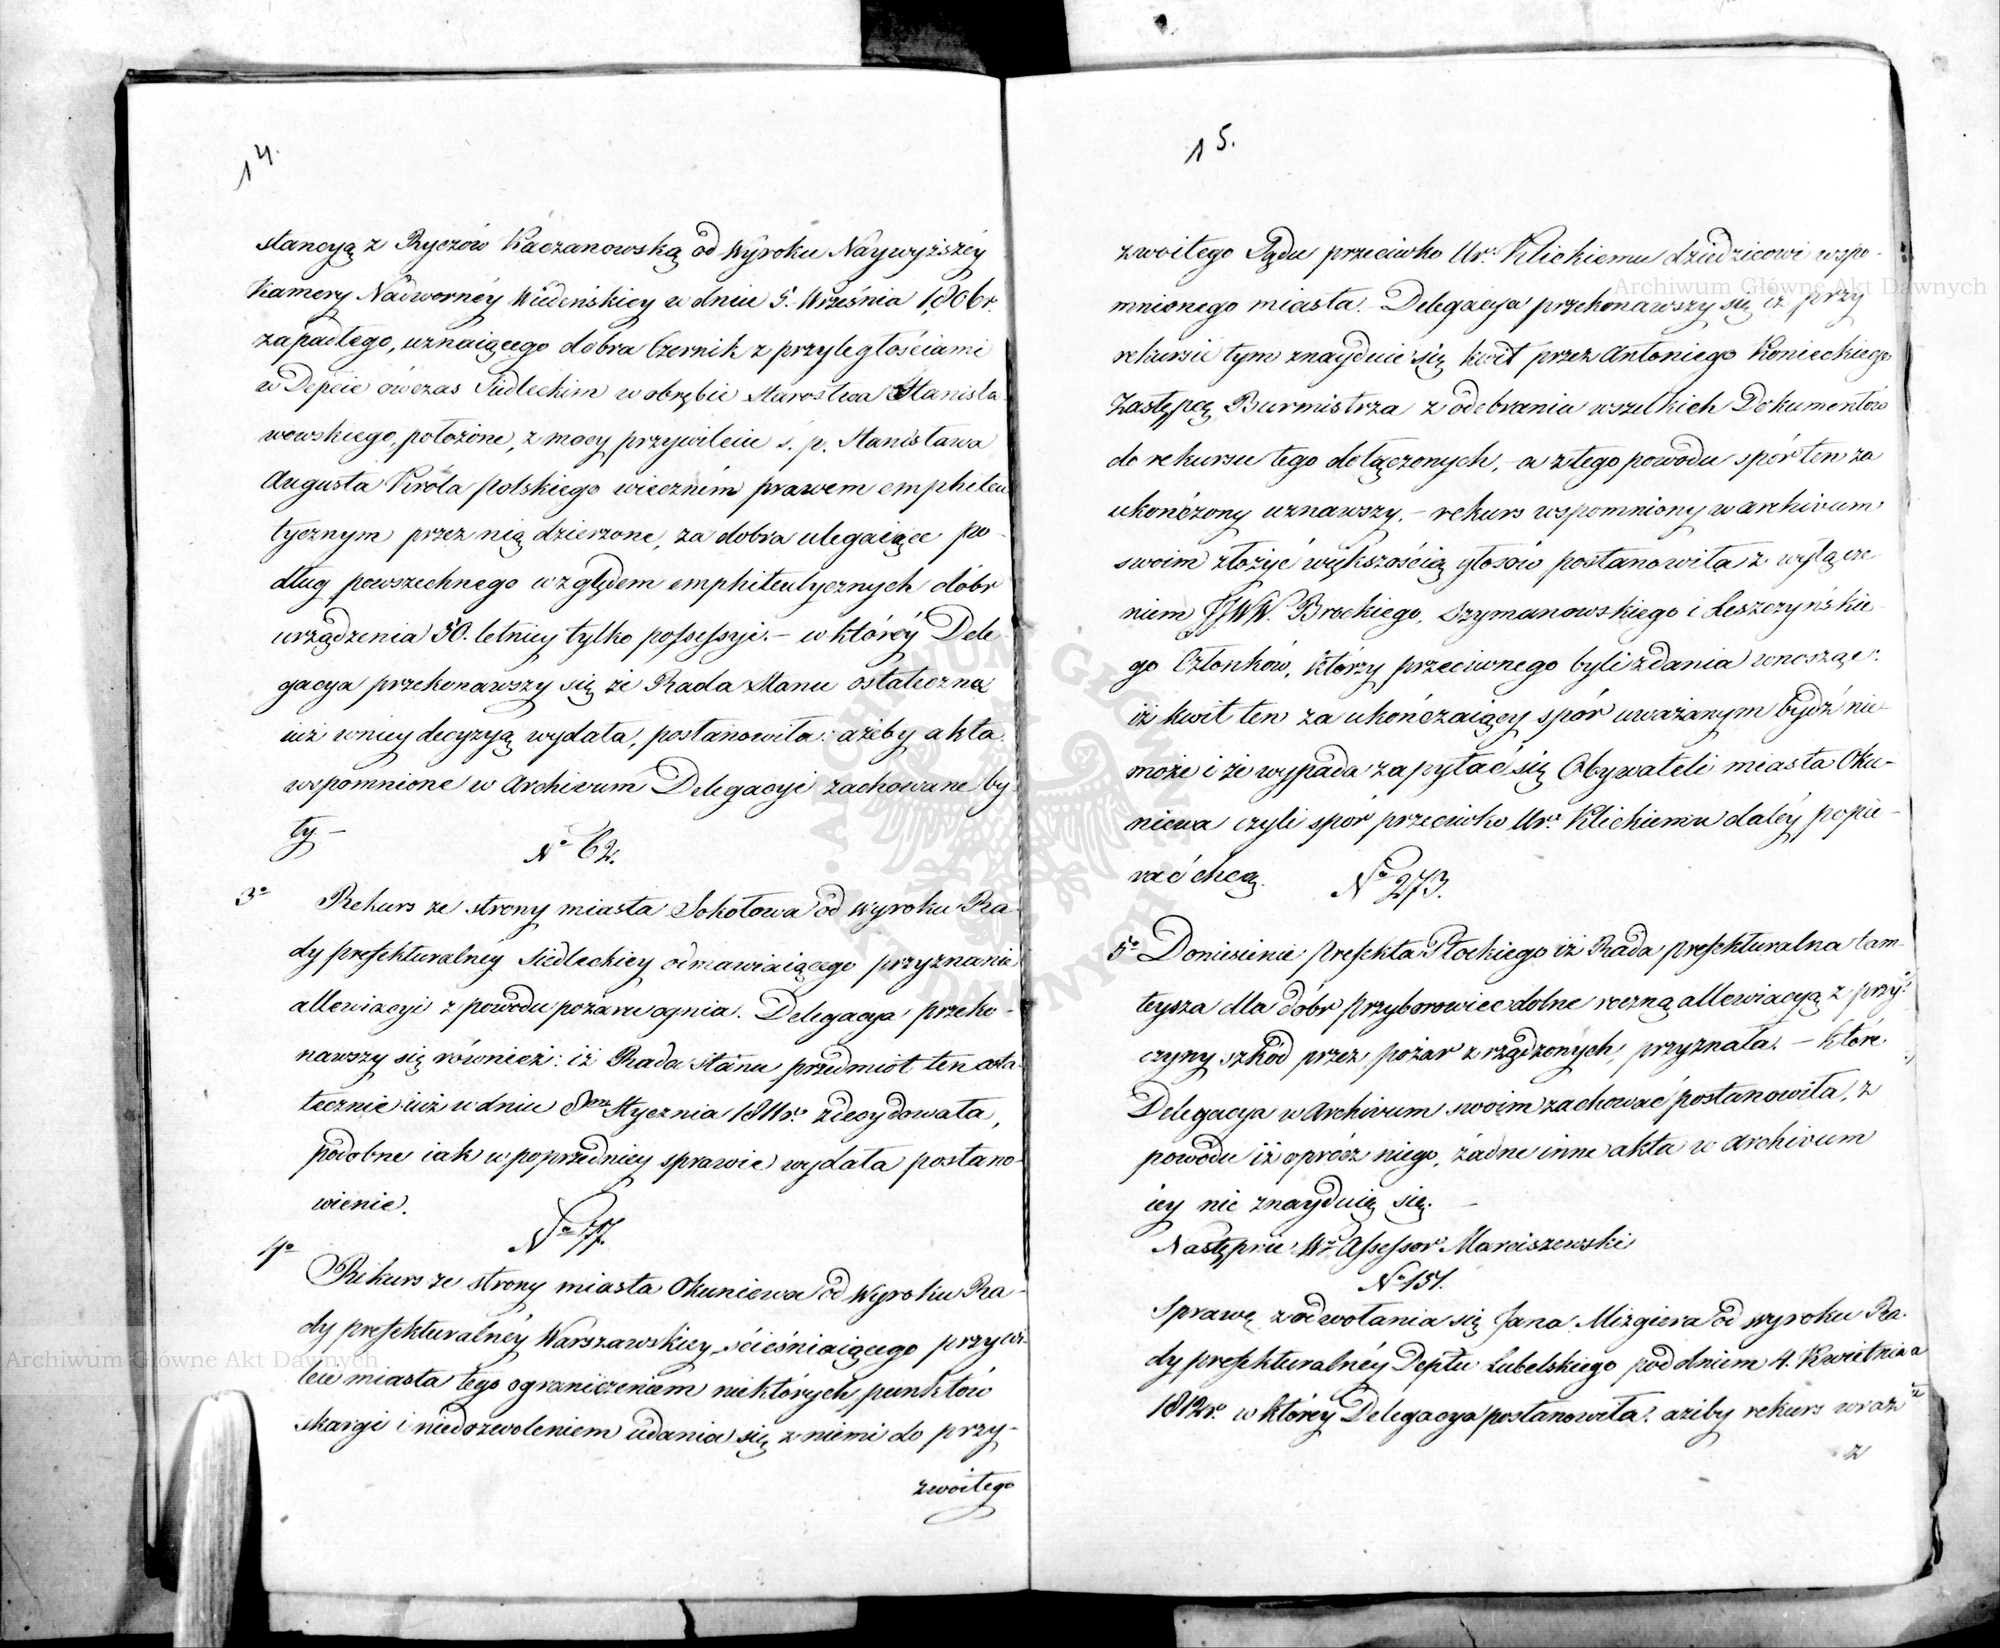 14.
stancyą z Ryczów Kaczanowską od Wyroku Naywyższéy
Kamery Nadwornéy Wiedeńskiey w dniu 5. Września 1806r.
zapadłego, uznaiącego dobra Czernik z przyległościami
w Depcie ówczas Siedleckim w obrębie Starostwa Stanisła-
wowskiego, położone, z mocy przywileiu ś. p. Stanisława
Augusta Króla polskiego wieczném prawem emphiteu-
tycznym przez nią dzierzone, za dobra ulegaiące po-
dług powszechnego względem emphiteutycznych dóbr
urządzenia 50. letniey tylko possessyi. – w któréy Dele-
gacya przekonawszy się że Rada Stanu ostateczną
iuż w niey decyzyą wydała, postanowiła: ażeby akta
wspomnione w Archivum Delegacyi zachowane by-
ły –
No 62.
3o Rekurs ze strony miasta Sokołowa od Wyroku Ra-
dy prefekturalnéy Siedleckiey odmawiaiącego przyznanie
allewiacyi z powodu pożaru ognia. Delegacya przeko-
nawszy się również: iż Rada Stanu przedmiot ten osta-
tecznie iuż w dniu 8m Stycznia 1811r. zdecydowała,
podobne iak w poprzedniey sprawie wydała postano-
wienie.
No 77.
4o Rekurs ze strony miasta Okuniewa od Wyroku Ra-
dy prefekturalnéy Warszawskiey, ścieśniaiącego przywi-
leie miasta tego ograniczeniem niektórych punktów
skargi i niedozwoleniem udania się z niemi do przy-
zwoitego
15.
zwoitego Sądu przeciwko Ur. Klickiemu dziedzicowi wspo-
mnionego miasta. Delegacya przekonawszy się iż przy
rekursie tym znayduie się kwit przez Antoniego Konieckiego
Zastępcę Burmistrza z odebrania wszelkich Dokumentów
do rekursu tego dołączonych, – a z tego powodu spór ten za
ukończony uznawszy, – rekurs wspomniony w archivum
swoim złożyć większością głosów postanowiła z wyłącze-
niem JJWW. Brockiego, Szymanowskiego i Leszczyńskie-
go Członków, którzy przeciwnego byli zdania wnosząc:
iż kwit ten za ukończaiący spór uważanym bydź nie
może i że wypada zapytać się Obywateli miasta Oku-
niewa czyli spór przeciwko Ur. Klickiemu daléy popie-
rać chcą.
No 273.
5o Doniesienie Prefekta Płockiego iż Rada prefekturalna tam-
teysza dla dóbr Przyborowiec dolne roczną allewiacyą z przy-
czyny szkód przez pożar zrządzonych przyznała. – które
Delegacya w Archivum swoim zachować postanowiła, z
powodu iż oprócz niego, żadne inne akta w Archivum
iey nie znayduią się. –
Następnie Wr Assessor Marciszewski
No 151.
Sprawę z odwołania się Jana Mizgiera od wyroku Ra-
dy prefekturalnéy Deptu Lubelskiego pod dniem 4. Kwietnia
1812r. w któréy Delegacya postanowiła: ażeby rekurs wraz
z
Archiwum Główne Akt Dawnych
Archiwum Główne Akt Dawnych
ARCHIWUM GŁÓWNE AKT DAWNYCH